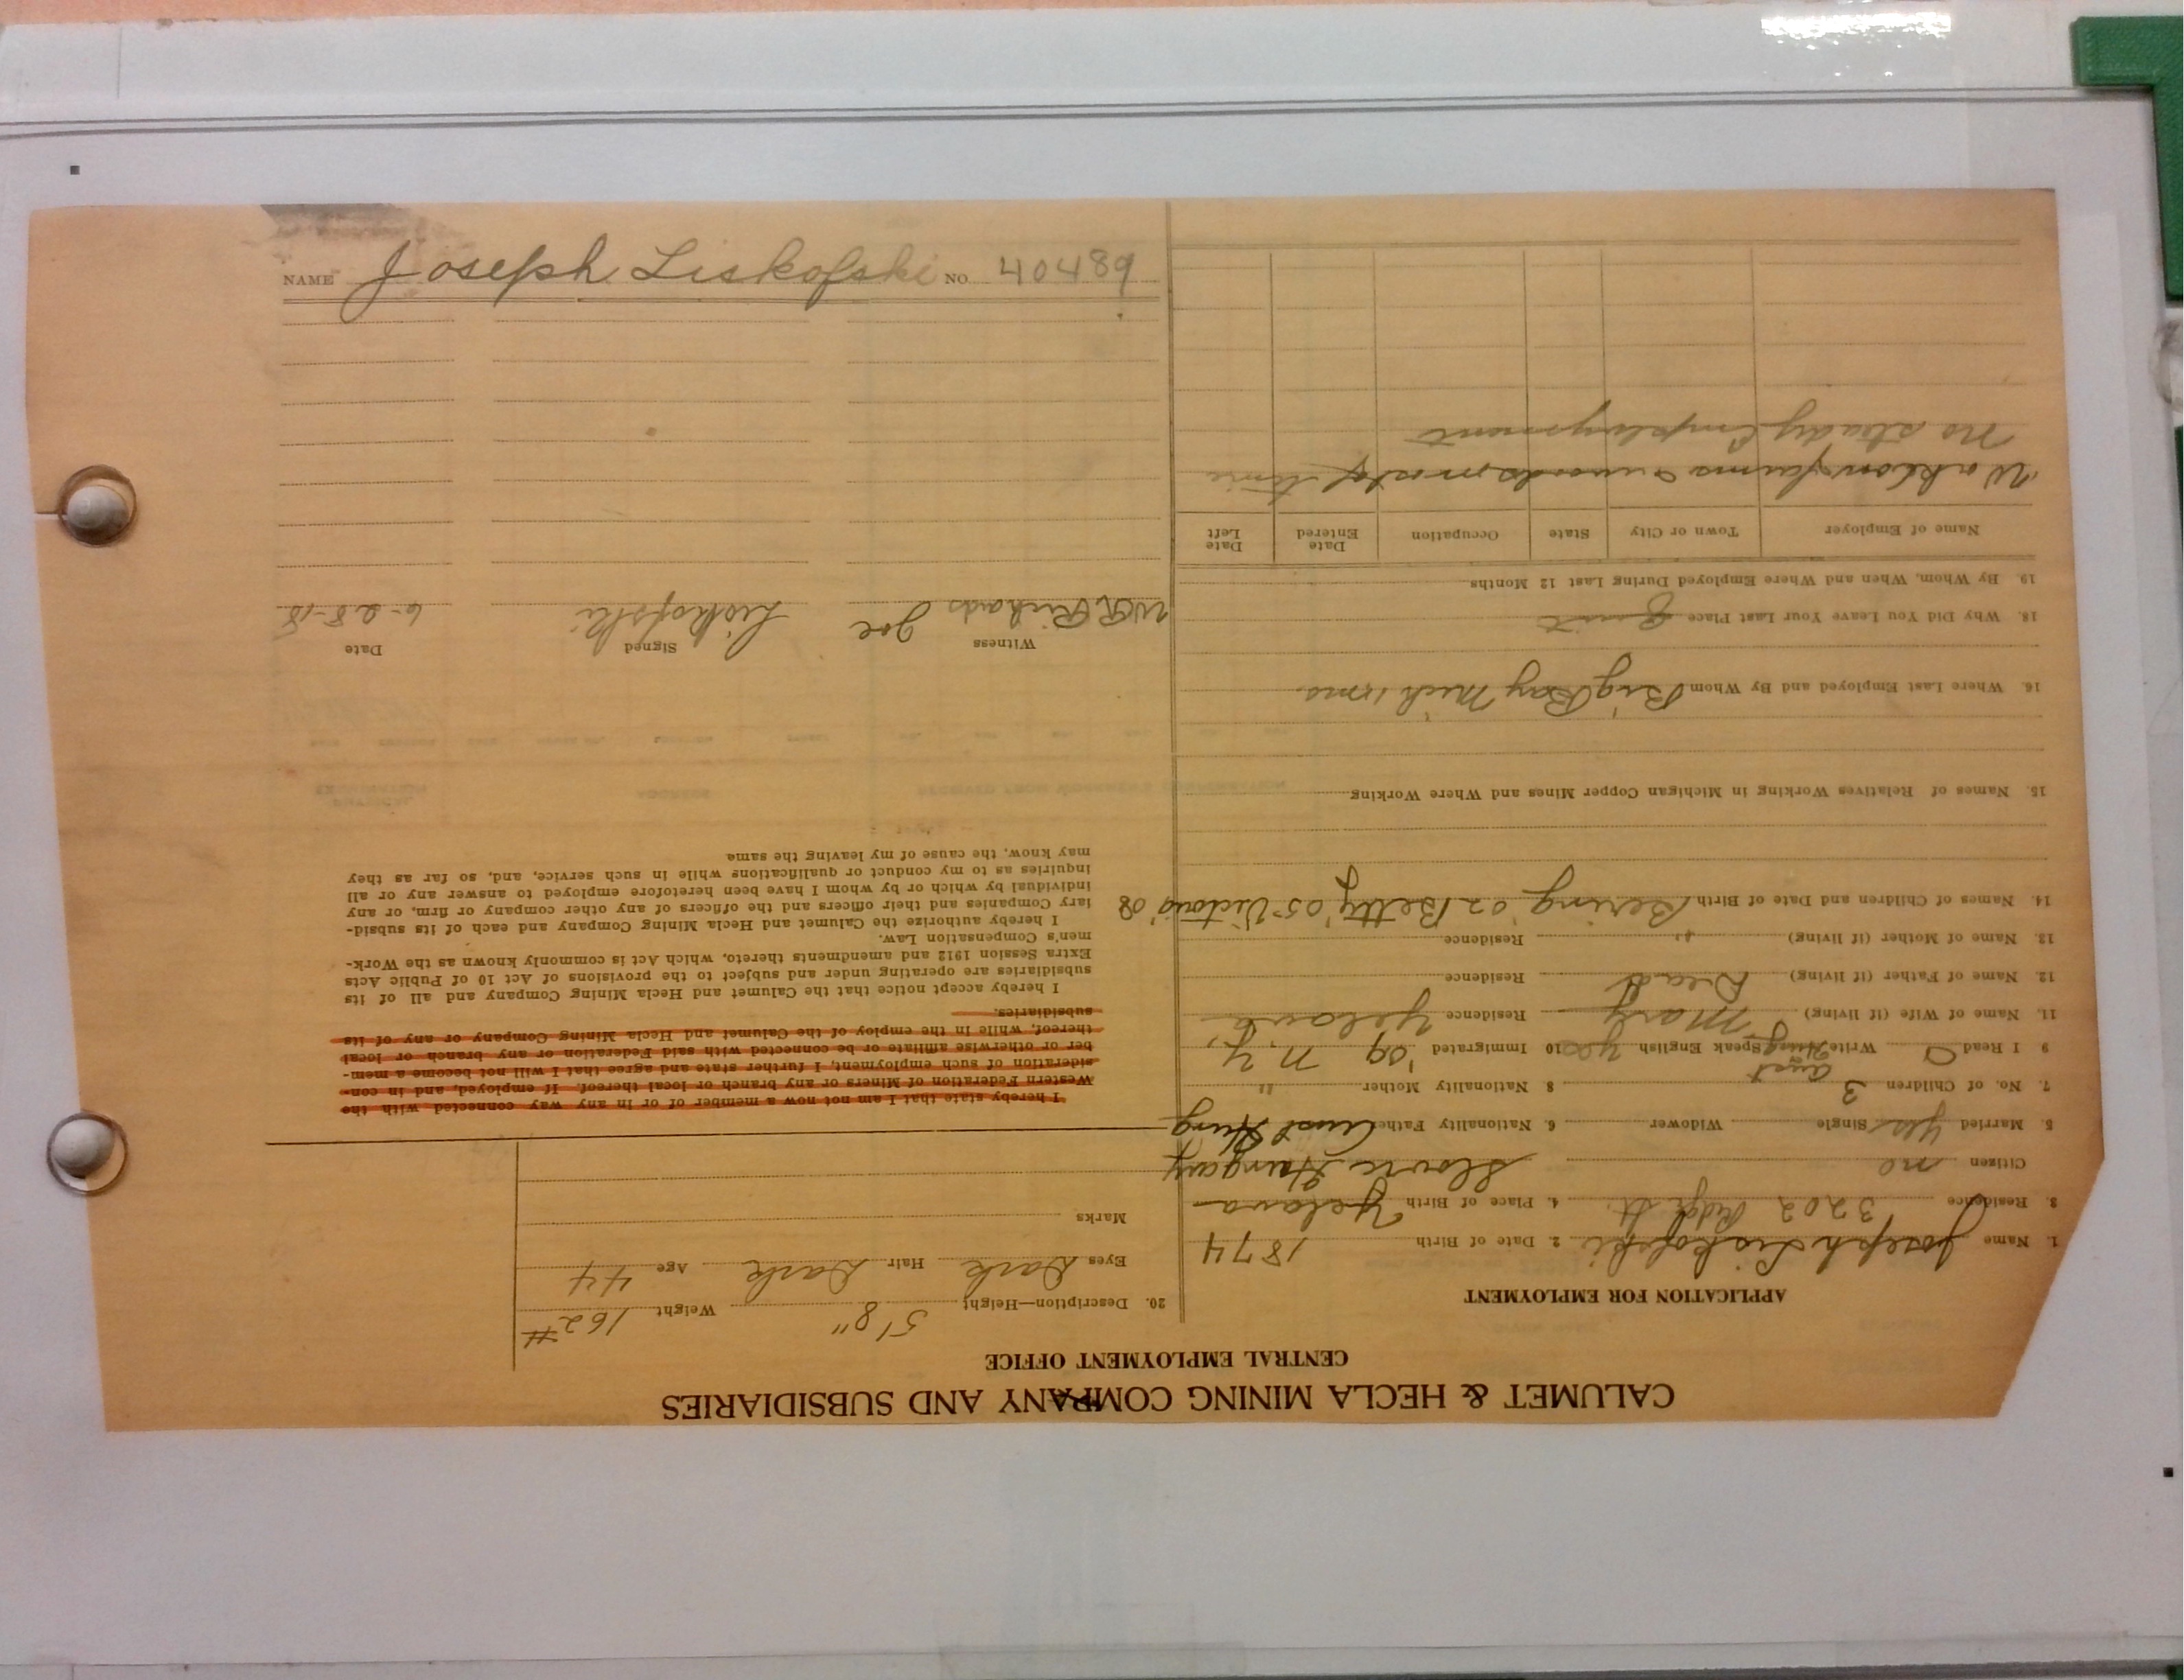 CALUMET & HECLA MINING COMPANY AND SUBSIDIARIES
CENTRAL EMPLOYMENT OFFICE
APPLICATION FOR EMPLOYMENT
1. Name Joseph Liskofski 2. Date of Birth 1874
3. Residence 3202 St. 4. Place of Birth Yelava
Citizen no Hungary
5. Married yes Single Widower 6. Nationality Father Aust Hung
7. No. of Children 3 8 Nationality Mother "
9 I Read Write Speak English yes 10 Immigrated '09 N.Y.
11. Name of Wife (if living) Mary Residence Yelava
12. Name of Father (if living) Dead Residence
13. Name of Mother (if living) " Residence
14. Names of Children and Date of Birth Bering '02 Betty '05 '08
15. Names of Relatives Working in Michigan Copper Mines and Where Working
16. Where Last Employed and By Whom Big Bay Mich 1 mo
18. Why Did You Leave Your Last Place Quit
19. By Whom, When and Where Employed During Last 12 Months
Name of Employer Town or City State Occupation Date Entered Date Left
farms & woods most of time
No steady Employment
20. Description—Height 5'8" Weight 162#
Eyes Dark Hair Dark Age 44
Marks
I hereby state that I am not now a member of or in any way connected with the
Western Federation of Miners or any branch or local thereof. If employed, and in con-
sideration of such employment, I further state and agree that I will not become a mem-
ber or otherwise affiliate or be connected with said Federation or any branch or local
thereof, while in the employ of the Calumet and Hecla Mining Company or any of its
subsidiaries.
I hereby accept notice that the Calumet and Hecla Mining Company and all of its
subsidiaries are operating under and subject to the provisions of Act 10 of Public Acts
Extra Session 1912 and amendments thereto, which Act is commonly known as the Work-
men's Compensation Law.
I hereby authorize the Calumet and Hecla Mining Company and each of its subsid-
iary Companies and their officers and the officers of any other company or firm, or any
individual by which or by whom I have been heretofore employed to answer any or all
inquiries as to my conduct or qualifications while in such service, and, so far as they
may know, the cause of my leaving the same
Witness Signed Date
W R Richards Joe Liskofski 6-28-18
NAME Joseph Liskofski NO. 40489